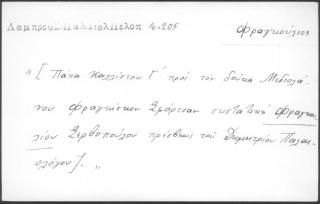 Λαμπρου: Παλ.κ.Πελοπ 4.205
Φραγκούλιος
α [ Πάπα Καλλίστου Γ΄ πρός τόν δούκα Μεδιολά-
νου Φραγκίσκον Σφόρτσαν συστατική Φραγκου-
λίου Σερβοπούλου πρέσβεως τοῦ Δημητρίου Παλαι-
ολόγου]. „